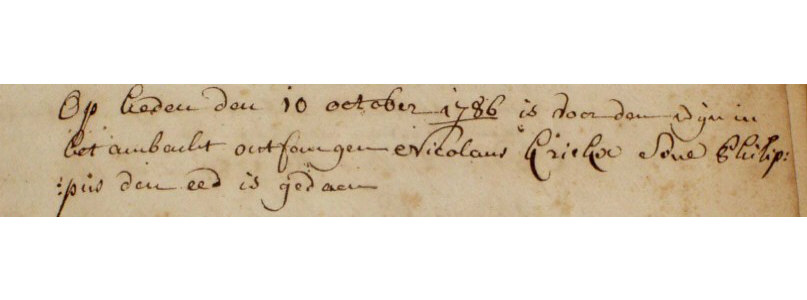 Op heden den 10 october 1786 is door den wijn in
het ambacht ontfangen Nicolaus Krickx Sone Philip:
:pus den eed is gedaen